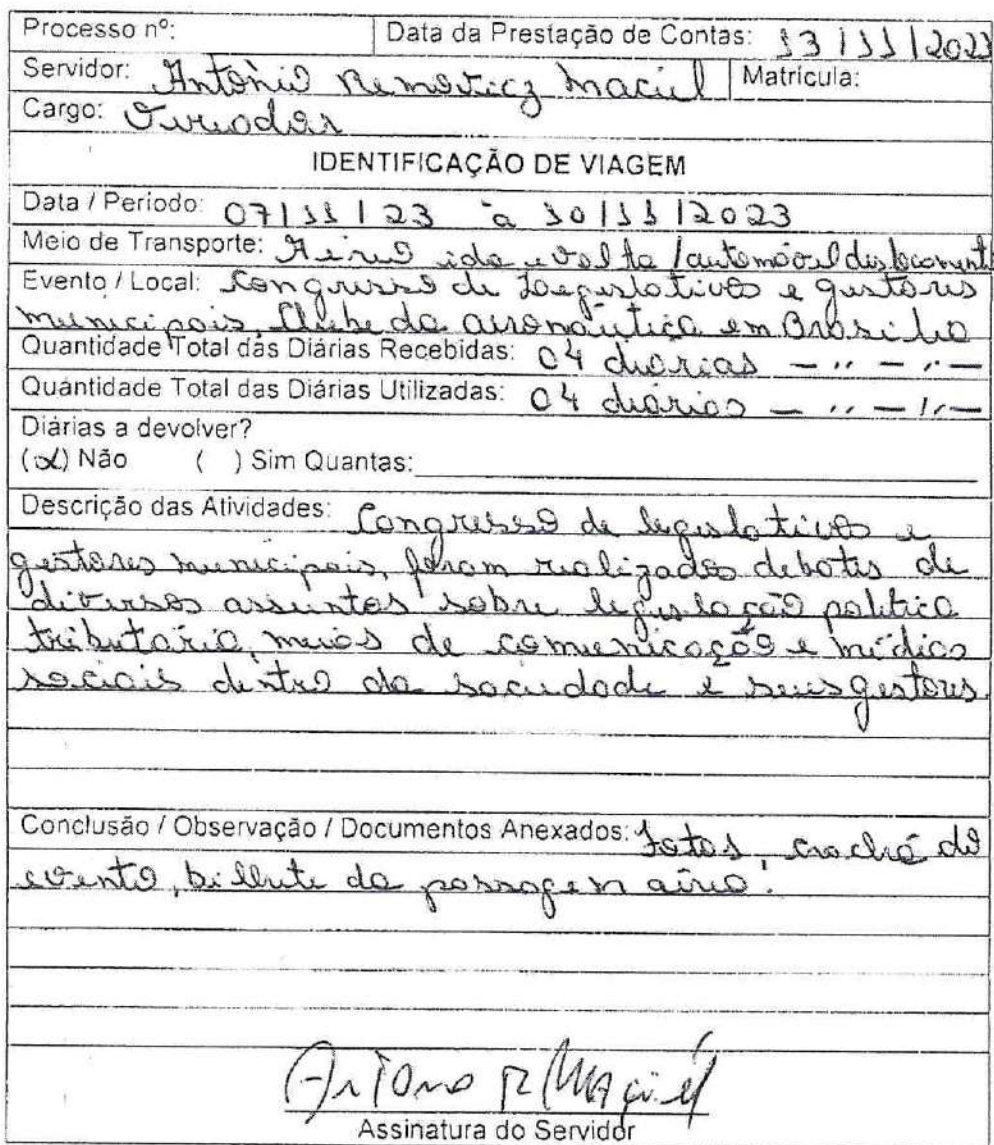 Processo nº: Data da Prestação de Contas: 13/11/2023
Servidor: Antônio Removicz Maciel Matrícula:
Cargo: Vereador
IDENTIFICAÇÃO DE VIAGEM
Data / Período: 07/11/23 à 10/11/2023
Meio de Transporte: Aéreo ida e volta / automóvel deslocament
Evento / Local: Congresso de Legislativos e gestores
municipais, Clube da aeronáutica em Brasília
Quantidade Total das Diárias Recebidas: 04 diárias — " — " —
Quantidade Total das Diárias Utilizadas: 04 diárias — " — " —
Diárias a devolver?
(x) Não ( ) Sim Quantas:
Descrição das Atividades: Congresso de legislativos e
gestores municipais, foram realizados debates de
diversos assuntos sobre legislação politica
tributaria, meios de comunicação e midias
sociais dentro da sociedade e seus gestores.
Conclusão / Observação / Documentos Anexados: Fotos, crachá do
evento, bilhete da passagem aérea.
Antonio R Maciel
Assinatura do Servidor